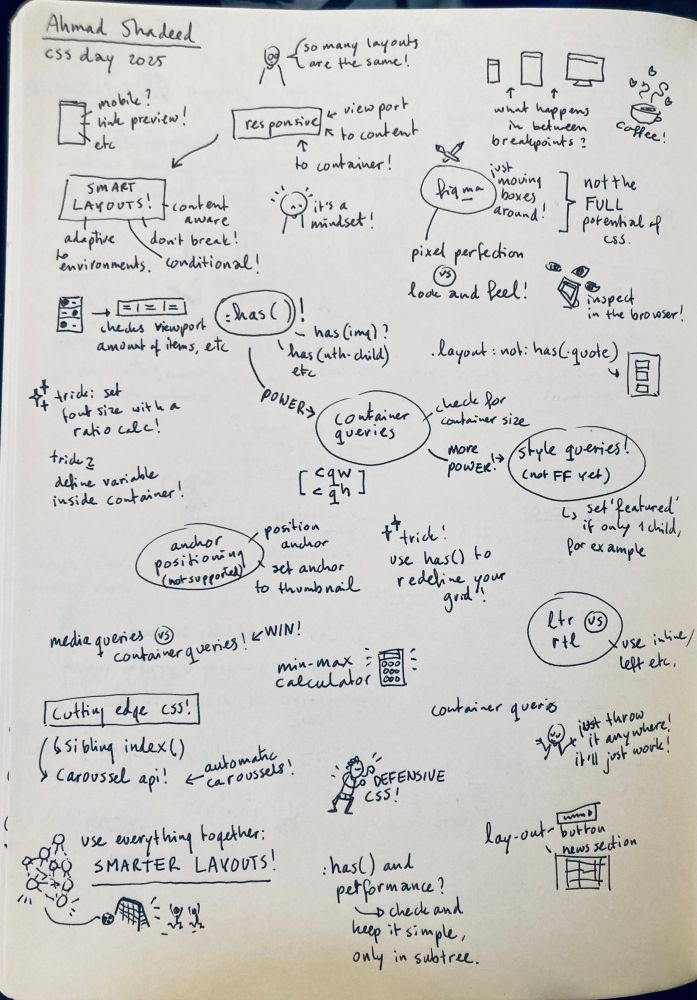 Ahmad Shadeed
css day 2025
so many layouts
are the same!
mobile?
link preview!
etc
responsive
viewport
to content
to container!
what happens
in between
breakpoints?
coffee!
SMART
LAYOUTS!
content
aware
adaptive
to
environments.
don't break!
conditional!
it's a
mindset!
figma
just
moving
boxes
around!
not the
FULL
potential of
css.
pixel perfection
vs
look and feel!
inspect
in the browser!
checks viewport
amount of items, etc
:has()!
has(img)?
has(nth-child)
etc
.layout:not:has(.quote)
trick: set
font size with a
ratio calc!
trick 2
define variable
inside container!
POWER!
container
queries
check for
container size
[cqw
cqh]
more
POWER!
style queries!
(not FF yet)
set 'featured'
if only 1 child,
for example
anchor
positioning
(not supported)
position
anchor
set anchor
to thumbnail
trick!
use has() to
redefine your
grid!
ltr vs
rtl
use inline/
left etc.
media queries vs
container queries! WIN!
min-max
calculator
cutting edge css!
sibling index()
caroussel api!
automatic
caroussels!
container queries
just throw
it anywhere!
it'll just work!
DEFENSIVE
CSS!
lay-out
button
news section
use everything together:
SMARTER LAYOUTS!
:has() and
performance?
check and
keep it simple,
only in subtree.